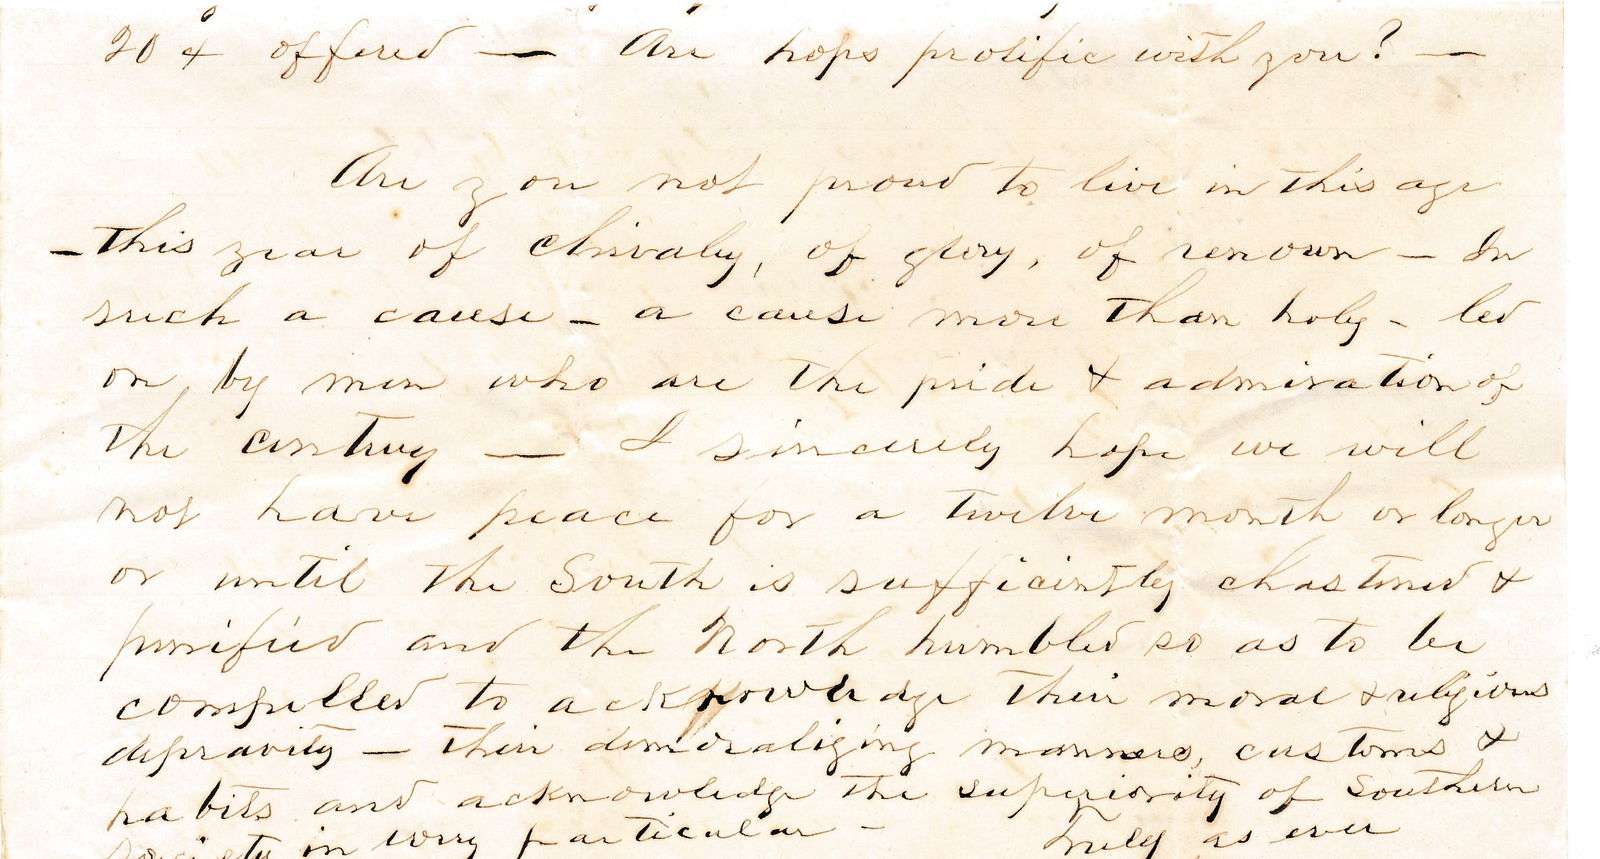 20 ¢ offered — Are hops prolific with you? —
Are you not proud to live in this age
- this year of chivalry, of glory, of renown — In
such a cause - a cause more than holy - led
on by men who are the pride & admiration of
the century — I sincerely hope we will
not have peace for a twelve month or longer
or until the South is sufficiently chastened &
purified and the North humbled so as to be
compelled to acknowledge their moral & religious
depravity — their demoralizing manners, customs &
habits and acknowledge the superiority of Southern
society in every particular - Truly as ever